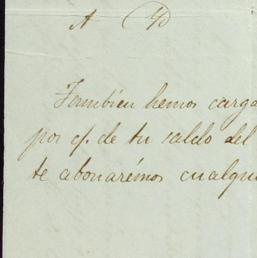 A
También hemos carga
por c/. de tu saldo del
te abonarémos cualqu